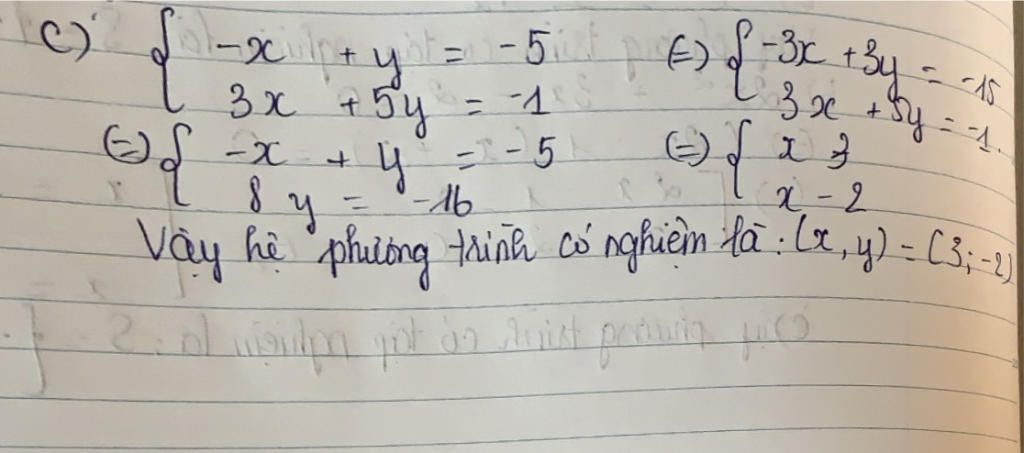 c) { -x + y = -5 (=) { -3x + 3y = -15
3x + 5y = -1 3x + 5y = -1.
(=) { -x + y = -5 (=) { x 3
8y = -16 x - 2
Vậy hệ phương trình có nghiệm là : (x, y) = (3; -2)